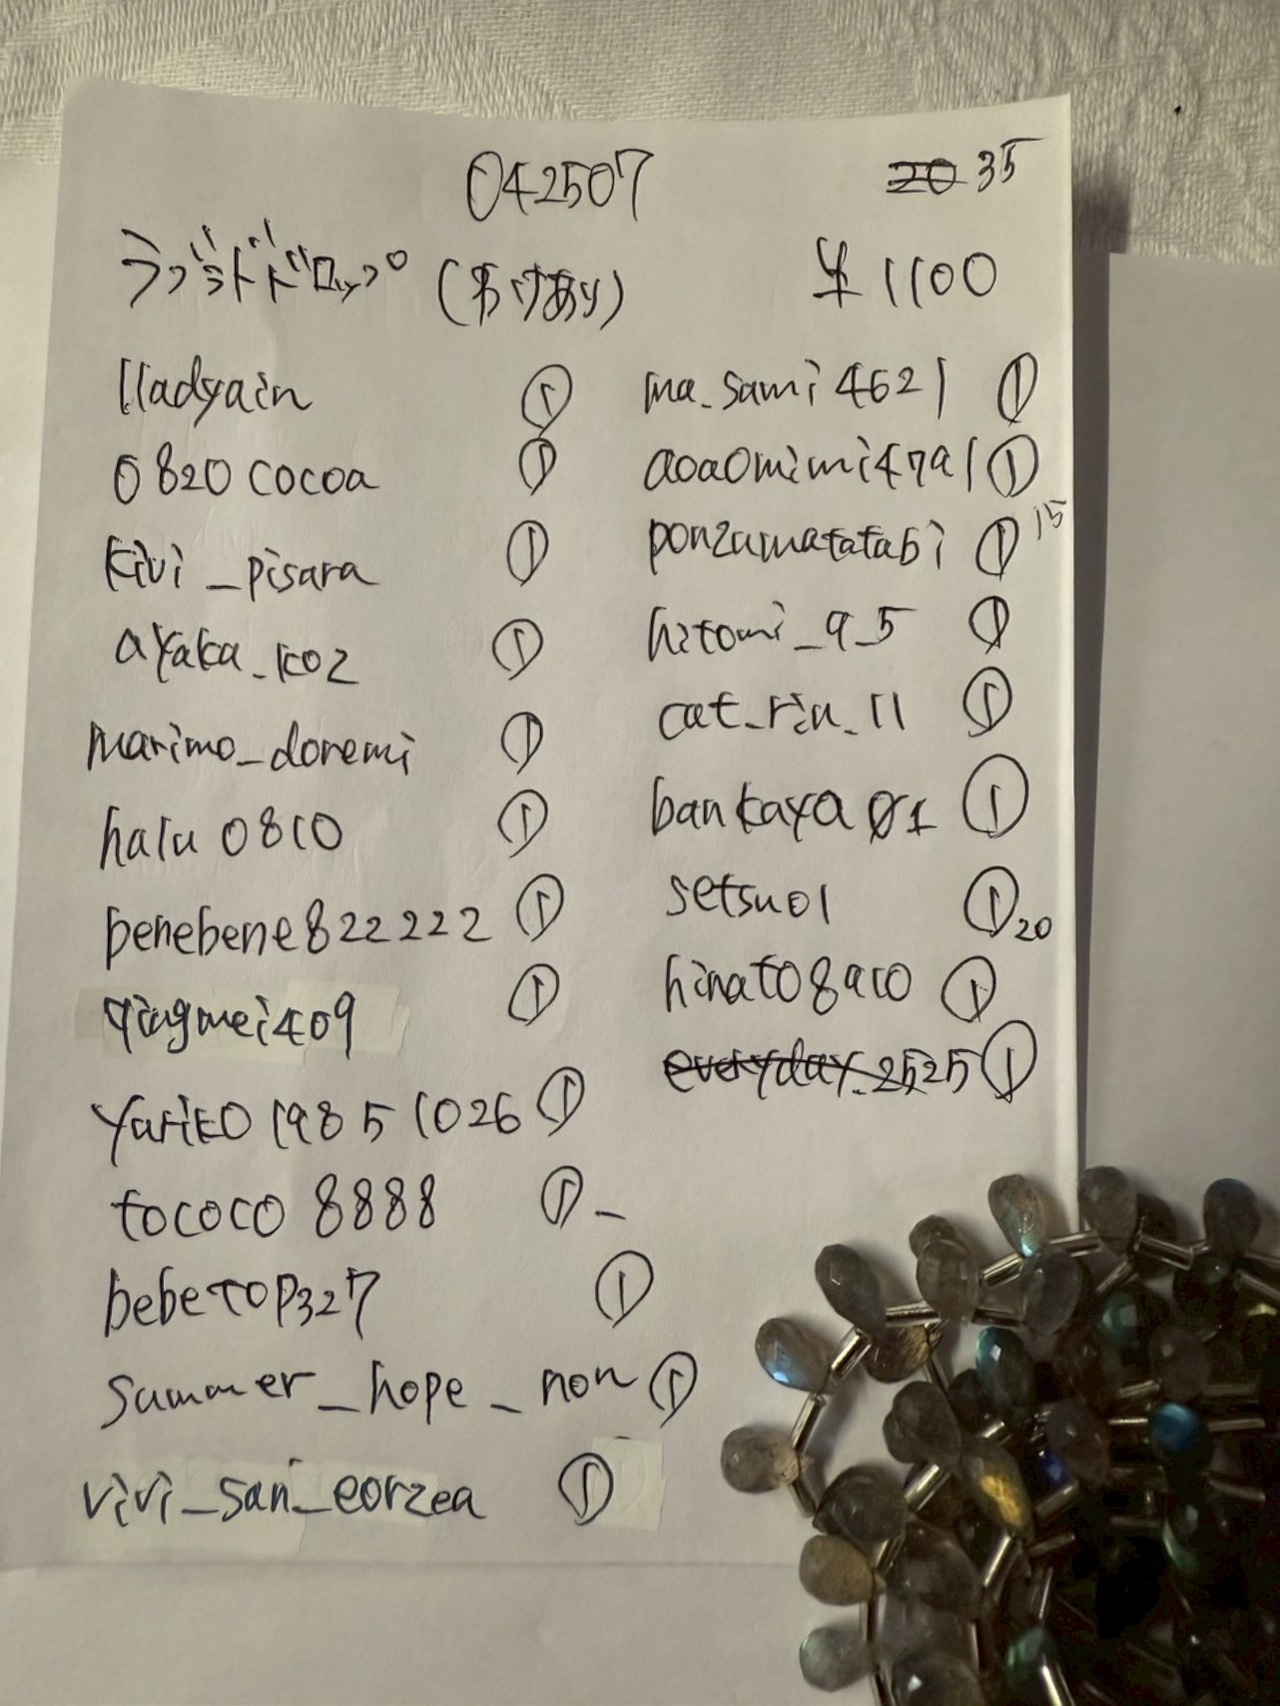 042507
20 35
ラブラドドロップ (わけあり) ¥1100
lladyain ①
0820cocoa ①
kivi_pisara ①
ayaka_ko2 ①
marimo_doremi ①
halu0810 ①
benebene822222 ①
qingmei409 ①
yariko19851026 ①
tococo8888 ① -
bebetop327 ①
summer_hope_non ①
vivi_san_eorzea ①
ma_sami4621 ①
aoaomimi4791 ①
ponzumatatabi ① 15
hitomi_9_5 ①
cat_rin_11 ①
bankaya01 ①
setsu01 ① 20
hinato8910 ①
everyday_2525 ①